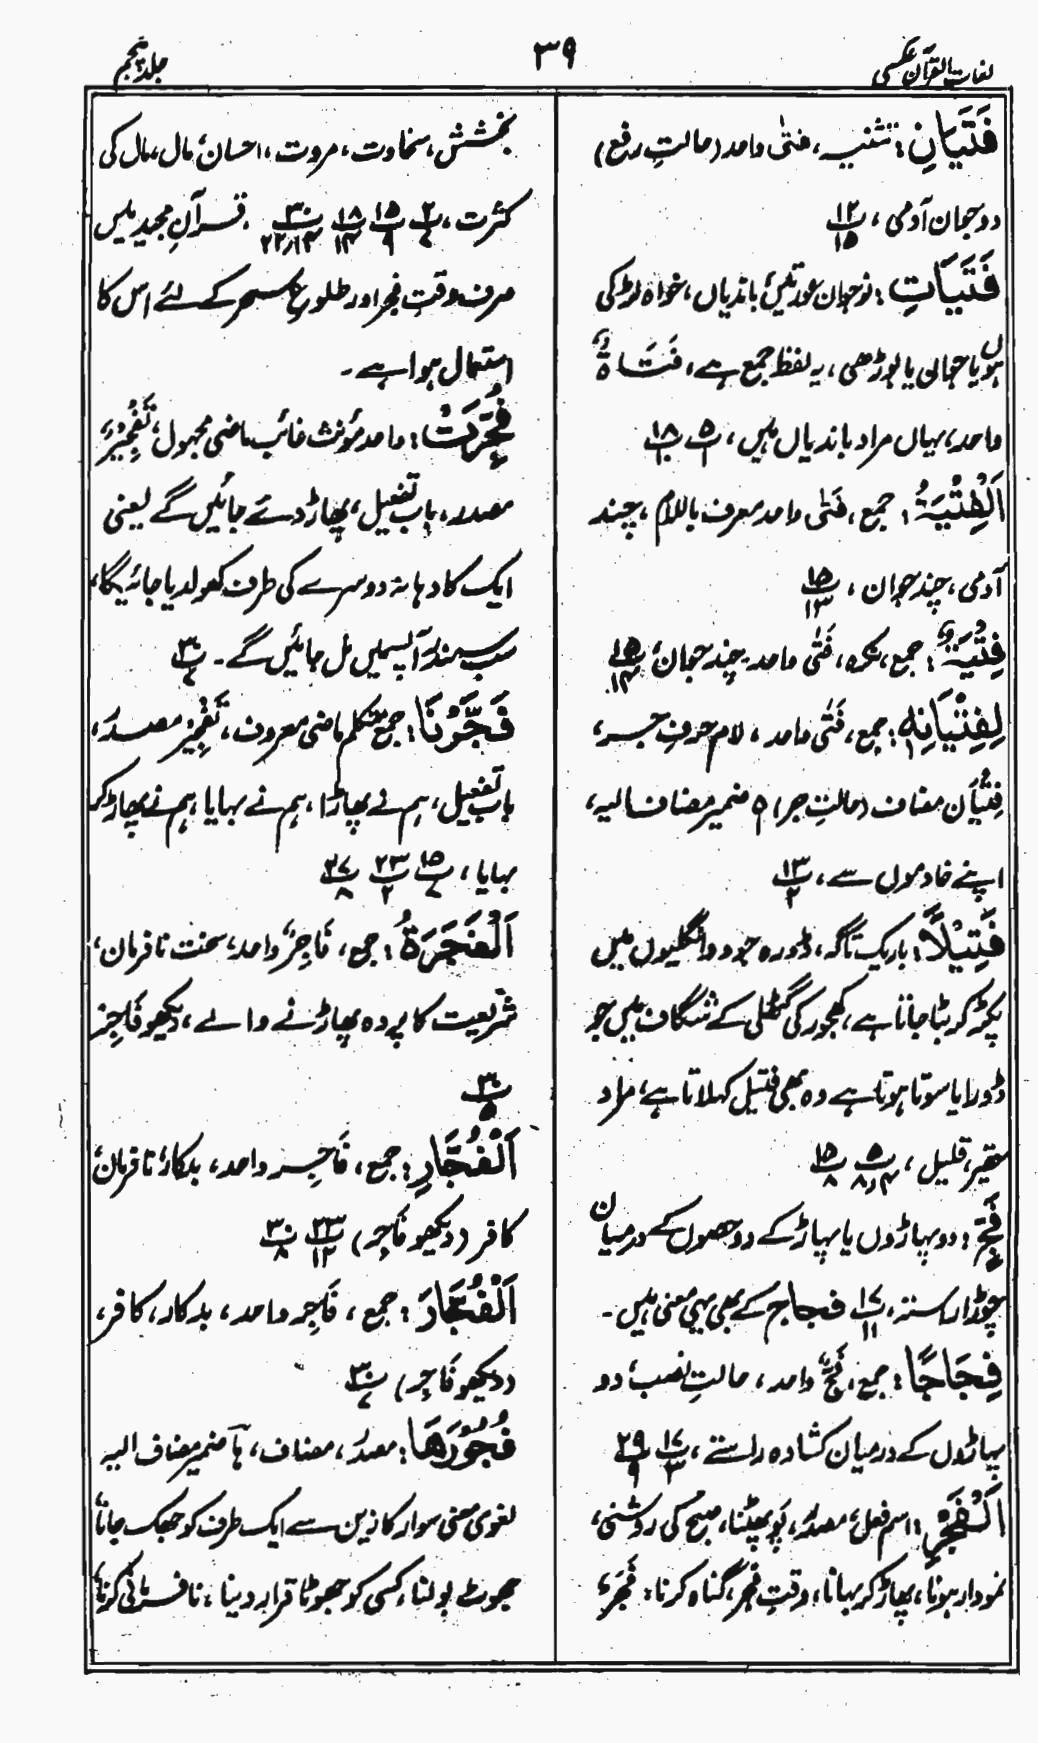 لغات القرآن عکسی
۳۹
جلد پنجم
فَتَیَانِ: تثنیہ، فتیٰ واحد (حالتِ رفع)
دو جوان آدمی، ۱۲/۱۵
فَتَیَاتِ: نوجوان عورتیں، باندیاں، خواہ لڑکی
ہوں یا جوان یا بوڑھی، یہ لفظ جمع ہے، فَتَاۃٌ
واحد، یہاں مراد باندیاں ہیں، ۵/۱ ۱۸/۱۰
اَلْفِتْیَۃُ: جمع، فَتٰی واحد معرف باللام، چند
آدمی، چند جوان، ۱۵/۱۳
فِتْیَۃٌ: جمع، نکرہ، فَتٰی واحد۔ چند جوان، ۱۵/۱۴
لِفِتْیَانِہٖ: جمع، فَتٰی واحد، لام حرفِ جر،
فِتْیَان مضاف (حالتِ جر) ہ ضمیر مضاف الیہ،
اپنے خادموں سے، ۱۳/۲
فَتِیْلًا: باریک تاگہ، ڈورہ جو دو انگلیوں میں
پکڑ کر بٹا جاتا ہے، کھجور کی گٹھلی کے شگاف میں جو
ڈورا یا سوتا ہوتا ہے وہ بھی فتیل کہلاتا ہے، مراد
حقیر، قلیل، ۵/۸٫۴ ۱۵/۸
فَجٍّ: دو پہاڑوں یا پہاڑ کے دو حصوں کے درمیان
چوڑا راستہ، ۱۷/۱۱ فجاج کے بھی یہی معنی ہیں۔
فِجَاجًا: جمع، فَجٌّ واحد، حالتِ نصب، دو
پہاڑوں کے درمیان کشادہ راستے، ۱۷/۳ ۲۹/۹
اَلْفَجْرِ: اسم فعل، مصدر، پو پھٹنا، صبح کی روشنی،
نمودار ہونا، پھاڑ کر بہانا، وقتِ فجر، گناہ کرنا: فَجَرَ،
بخشش، سخاوت، مروت، احسان، مال، مال کی
کثرت، ۲/۷ ۱۵/۹ ۱۸/۱۴ ۳۰/۲۲٫۱۴، قرآنِ مجید میں
صرف وقتِ فجر اور طلوعِ سحر کے لئے اس کا
استعمال ہوا ہے۔
فُجِّرَتْ: واحد مؤنث غائب ماضی مجہول، تَفْجِیْرٌ،
مصدر، باب تفعیل، پھاڑ دئے جائیں گے یعنی
ایک کا دہانہ دوسرے کی طرف کھولدیا جائیگا،
سب سمندر آپسمیں مل جائیں گے۔ ۳۰/۷
فَجَّرْنَا: جمع متکلم ماضی معروف، تَفْجِیْرٌ مصدر،
باب تفعیل، ہم نے پھاڑا، ہم نے بہایا، ہم نے پھاڑ کر
بہایا، ۱۵/۷ ۲۳/۲ ۲۷/۸
اَلْفَجَرَۃُ: جمع، فَاجِرٌ واحد، سخت نافرمان،
شریعت کا پردہ پھاڑنے والے، دیکھو فَاجِرٌ
۳۰/۵
اَلْفُجَّارِ: جمع، فَاجِر واحد، بدکار، نافرمان،
کافر (دیکھو فَاجِر) ۲۳/۱۲ ۳۰/۸
اَلْفُجَّارَ: جمع، فَاجِر واحد، بدکار، کافر،
(دیکھو فَاجِر) ۳۰/۷
فُجُوْرَھَا: مصدر، مضاف، ہَا ضمیر مضاف الیہ
لغوی معنی سوار کا زین سے ایک طرف کو جھک جانا،
جھوٹ بولنا، کسی کو جھوٹا قرار دینا: نافرمانی کرنا،